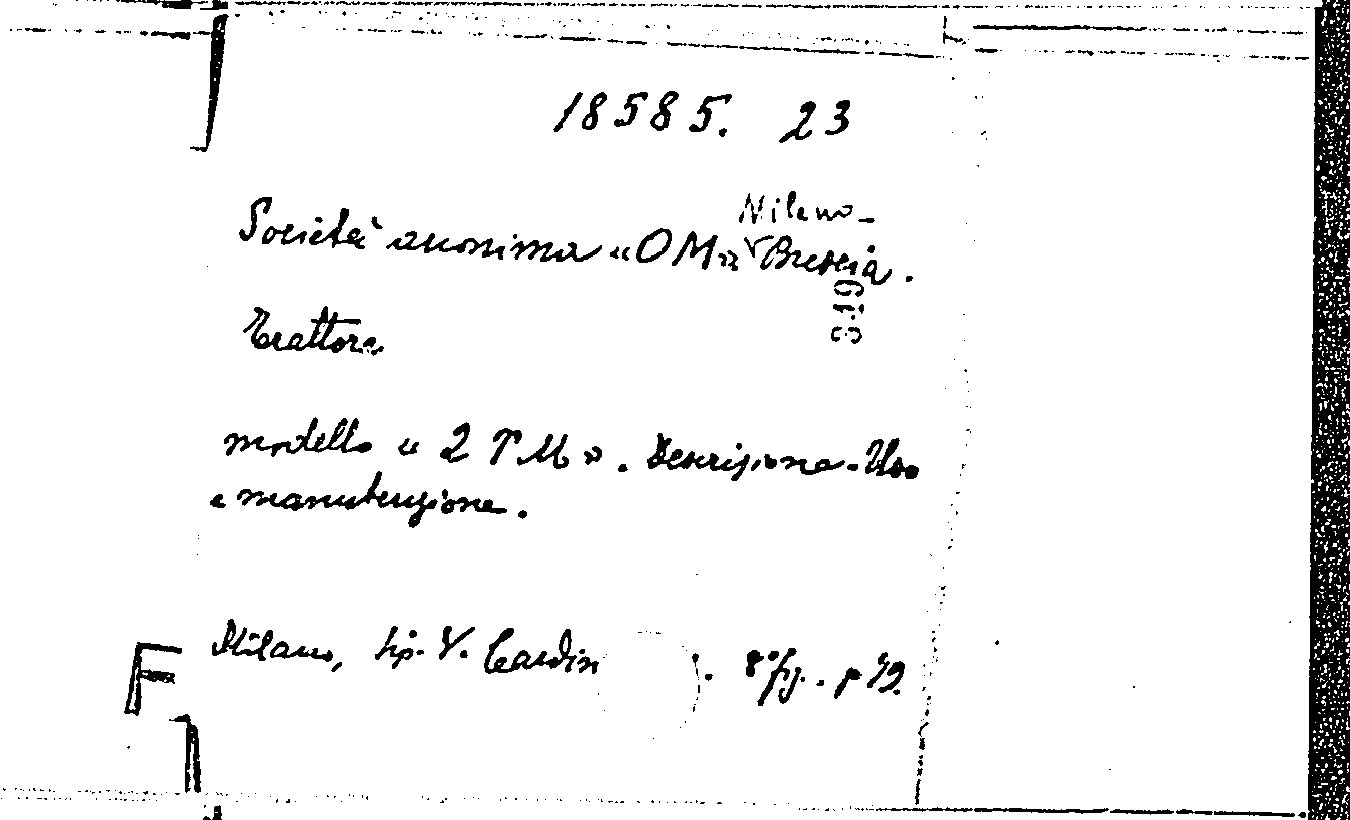 18585. 23
Milano -
Società anonima «OM» Brescia.
349
Trattore
modello « 2 TM». Descrizione - Uso
e manutenzione.
Milano, tip. V. Cardin . 8° fig. . p